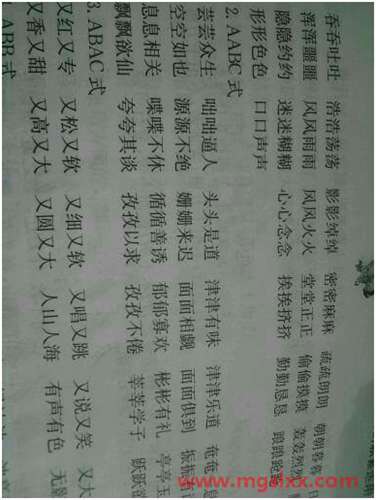 吞吞吐吐 浩浩荡荡 影影绰绰 密密麻麻 疏疏朗朗
浑浑噩噩 风风雨雨 风风火火 堂堂正正 偷偷摸摸 轰轰烈烈
隐隐约约 迷迷糊糊 心心念念 挨挨挤挤 勤勤恳恳 踉踉跄跄
形形色色 口口声声
2. AABC 式
芸芸众生 咄咄逼人 头头是道 津津有味 津津乐道 奄奄
空空如也 源源不绝 姗姗来迟 面面相觑 面面俱到 振振有
息息相关 喋喋不休 循循善诱 郁郁寡欢 彬彬有礼 亭亭玉
飘飘欲仙 夸夸其谈 孜孜以求 孜孜不倦 莘莘学子 跃跃欲
3. ABAC 式
又红又专 又松又软 又细又软 又唱又跳 又说又笑 又大
又香又甜 又高又大 又圆又大 人山人海 有声有色 无影
ABB 式
www.mgalxx.com